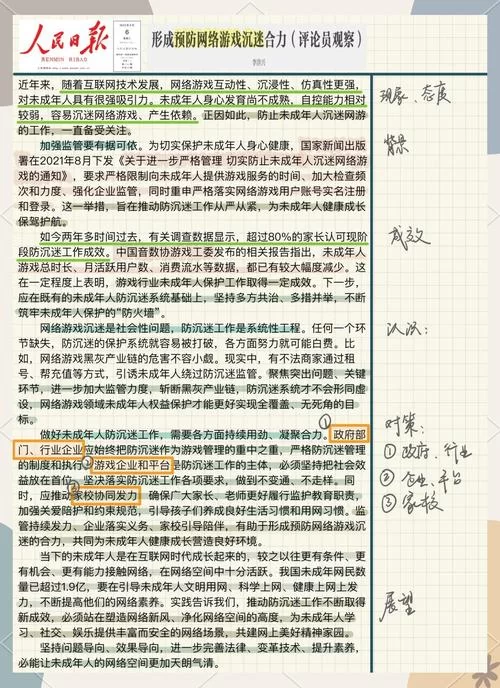 人民日报
RENMIN RIBAO
6
形成预防网络游戏沉迷合力（评论员观察）
近年来，随着互联网技术发展，网络游戏互动性、沉浸性、仿真性更强，
对未成年人具有很强吸引力。未成年人身心发育尚不成熟，自控能力相对
较弱，容易沉迷网络游戏、产生依赖。正因如此，防止未成年人沉迷网游
的工作，一直备受关注。
现象、态度
加强监管要有据可依。为切实保护未成年人身心健康，国家新闻出版
署在2021年8月下发《关于进一步严格管理 切实防止未成年人沉迷网络游戏
的通知》，要求严格限制向未成年人提供游戏服务的时间、加大检查
频次和力度、强化企业监管，同时重申严格落实网络游戏用户账号实名注册
和登录。这一举措，旨在推动防沉迷工作从严从紧，为未成年人健康成长
保驾护航。
背景
如今两年多时间过去，有关调查数据显示，超过80%的家长认可现阶
段防沉迷工作成效。中国音数协游戏工委发布的相关报告指出，未成年人
游戏总时长、月活跃用户数、消费流水等数据，都已有较大幅度减少。这
在一定程度上表明，游戏行业未成年人保护工作取得一定成效。下一步，
应在既有的未成年人防沉迷系统基础上，坚持多方共治、多措并举，不断
筑牢未成年人保护的“防火墙”。
成效
网络游戏沉迷是社会性问题，防沉迷工作是系统性工程。任何一个环
节缺失，防沉迷的保护系统就容易被打破，各方面努力就可能白费。比
如，网络游戏黑灰产业链的危害不容小觑。现实中，有不法商家通过租
号、帮充值等方式，引诱未成年人绕过防沉迷监管。聚焦突出问题、关键
环节，进一步加大监管力度，斩断黑灰产业链，防沉迷系统才不会形同虚
设，网络游戏领域未成年人权益保护才能更好实现全覆盖、无死角的目
标。
认识：
做好未成年人防沉迷工作，需要各方面持续用劲、凝聚合力。①政府部
门、行业企业应始终把防沉迷作为游戏管理的重中之重，严格防沉迷管理
的制度和执行。②游戏企业和平台是防沉迷工作的主体，必须坚持把社会效
益放在首位，坚决落实防沉迷工作各项要求，做到不变通、不走样。同
时，应推动③家校协同发力，确保广大家长、老师更好履行监护教育职责，
加强关爱陪护和约束规范，引导孩子们养成良好生活习惯和用网习惯。监
管持续发力、企业落实义务、家校引导陪伴，有助于形成预防网络游戏沉
迷的合力，共同为未成年人健康成长营造良好环境。
对策：
①政府、行业
②企业、平台
③家校
当下的未成年人是在互联网时代成长起来的，较之以往更有条件、更
有机会、更有能力接触网络，在网络空间中十分活跃。我国未成年网民数
量已超过1.9亿，要在引导未成年人文明用网、科学上网、健康上网上发
力，不断提高他们的网络素养。实践告诉我们，推动防沉迷工作不断取得
新成效，必须站在塑造网络新风、净化网络空间的高度，为未成年人学
习、社交、娱乐提供丰富而安全的网络场景，共建网上美好精神家园。
坚持问题导向、效果导向，进一步完善法律、变革技术、提升素养，
必能让未成年人的网络空间更加天朗气清。
展望